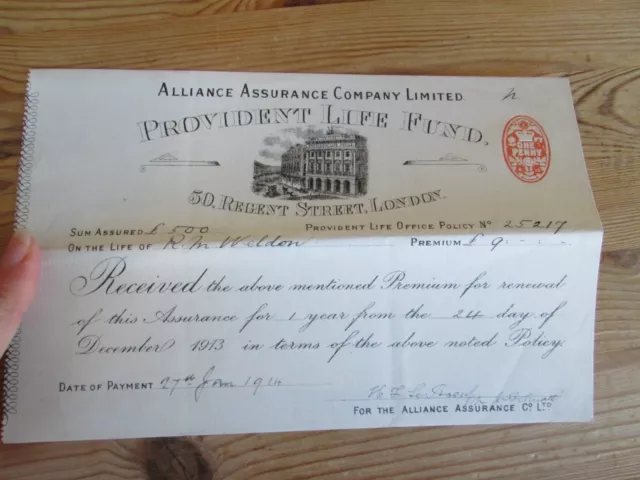 ALLIANCE ASSURANCE COMPANY LIMITED.
PROVIDENT LIFE FUND.
ONE PENNY
50, REGENT STREET, LONDON.
SUM ASSURED £500 PROVIDENT LIFE OFFICE POLICY No 25217
ON THE LIFE OF R. M. Weldon PREMIUM £ 9. - . - .
Received the above mentioned Premium for renewal
of this Assurance for 1 year from the 24 day of
December 1913 in terms of the above noted Policy.
DATE OF PAYMENT 27th 1914
FOR THE ALLIANCE ASSURANCE Co LTD